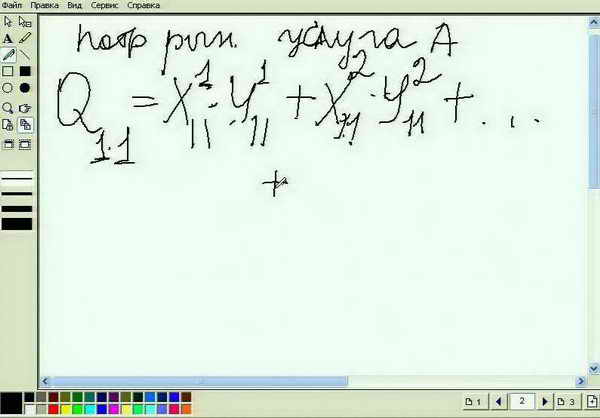 Файл Правка Вид Сервис Справка
потр рын. услуга А
Q₁.₁ = X₁₁¹ · Y₁₁¹ + X₁₁² · Y₁₁² + . . .
+
1 2 3